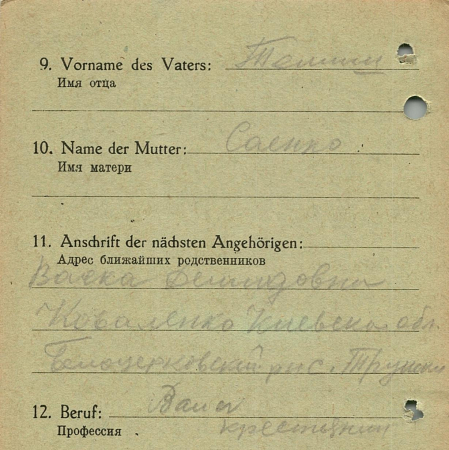 9. Vorname des Vaters:
Имя отца
10. Name der Mutter: Саенко
Имя матери
11. Anschrift der nächsten Angehörigen:
Адрес ближайших родственников
Коваленко Киевская обл.
Белоцерковский
12. Beruf:
Профессия крестьянин